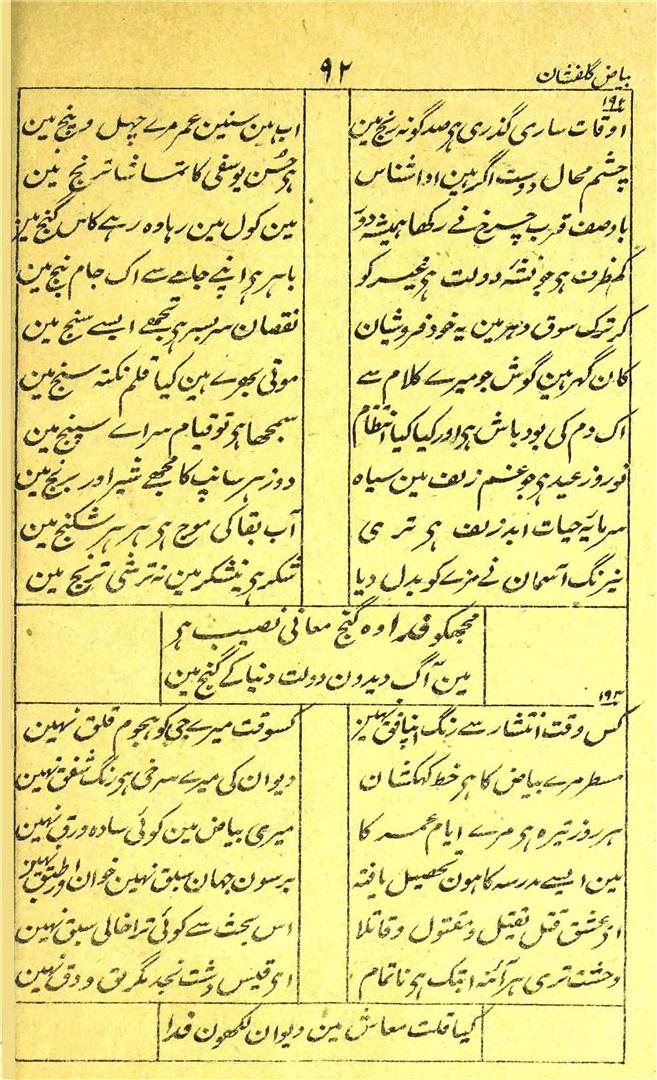 بیاض گلفشان
۹۲
۱۹۲
اوقات ساری گذری ہر صد گونہ رنج مین
اب ہین سنین عمر مرے چہل و پنج مین
چشم محال دوست اگر ہین ادا شناس
ہو حُسن یوسفی کا تماشا ترنج مین
باوصف قرب چرخ نے رکھا ہمیشہ دور
مین کول مین رہا وہ رہے کاس گنج مین
کمظرف ہو جو نشۂ دولت ہو خیر کو
باہر ہر اپنے جامے سے اک جام پنج مین
کر ترک سوق دہر مین یہ خود فروشیان
نقصان سربسر ہر تجھے ایسے سنج مین
کان گہر ہین گوش جو میرے کلام سے
موتی بھرے ہین کیا قلم نکتہ سنج مین
اک دم کی بود باش ہر اور کیا کیا انتظام
سمجھا ہر تو قیام سراے سپنج مین
نوروز عید ہو جو غم زلف مین سیاہ
دو زہر سانپ کا مجھے شیر اور برنج مین
سرمایۂ حیات ابد زلف ہر تری
آب بقا کی موج ہر ہر ہر شکنج مین
نیرنگ آسمان نے مزے کو بدل دیا
شکر ہر نیشکر مین نہ ترشی ترنج مین
مجھکو فدا وہ گنج معانی نصیب ہو
مین آگ دیدون دولت دنیا کے گنج مین
۱۹۳
کس وقت انتشار سے رنگ اپنا فق نہین
کسوقت میرے جی کو ہجوم قلق نہین
مسطر مرے بیاض کا ہر خط کہکشان
دیوان کی میرے سرخی ہر رنگ شفق نہین
ہر روز تیرہ ہو مرے ایام عمر کا
میری بیاض مین کوئی سادہ ورق نہین
مین ایسے مدرسہ کا ہون تحصیل یافتہ
برسون جہان سبق نہین خوان اور طبق نہین
از عشق قتل یقتل و مقتول و قاتلا
اس بحث سے کوئی ترا خالی سبق نہین
وحشت تری ہر آئنہ ابتک ہر ناتمام
اے قیس دشت نجد مگر لق و دق نہین
کیا قلت معاش مین دیوان لکھون فدا